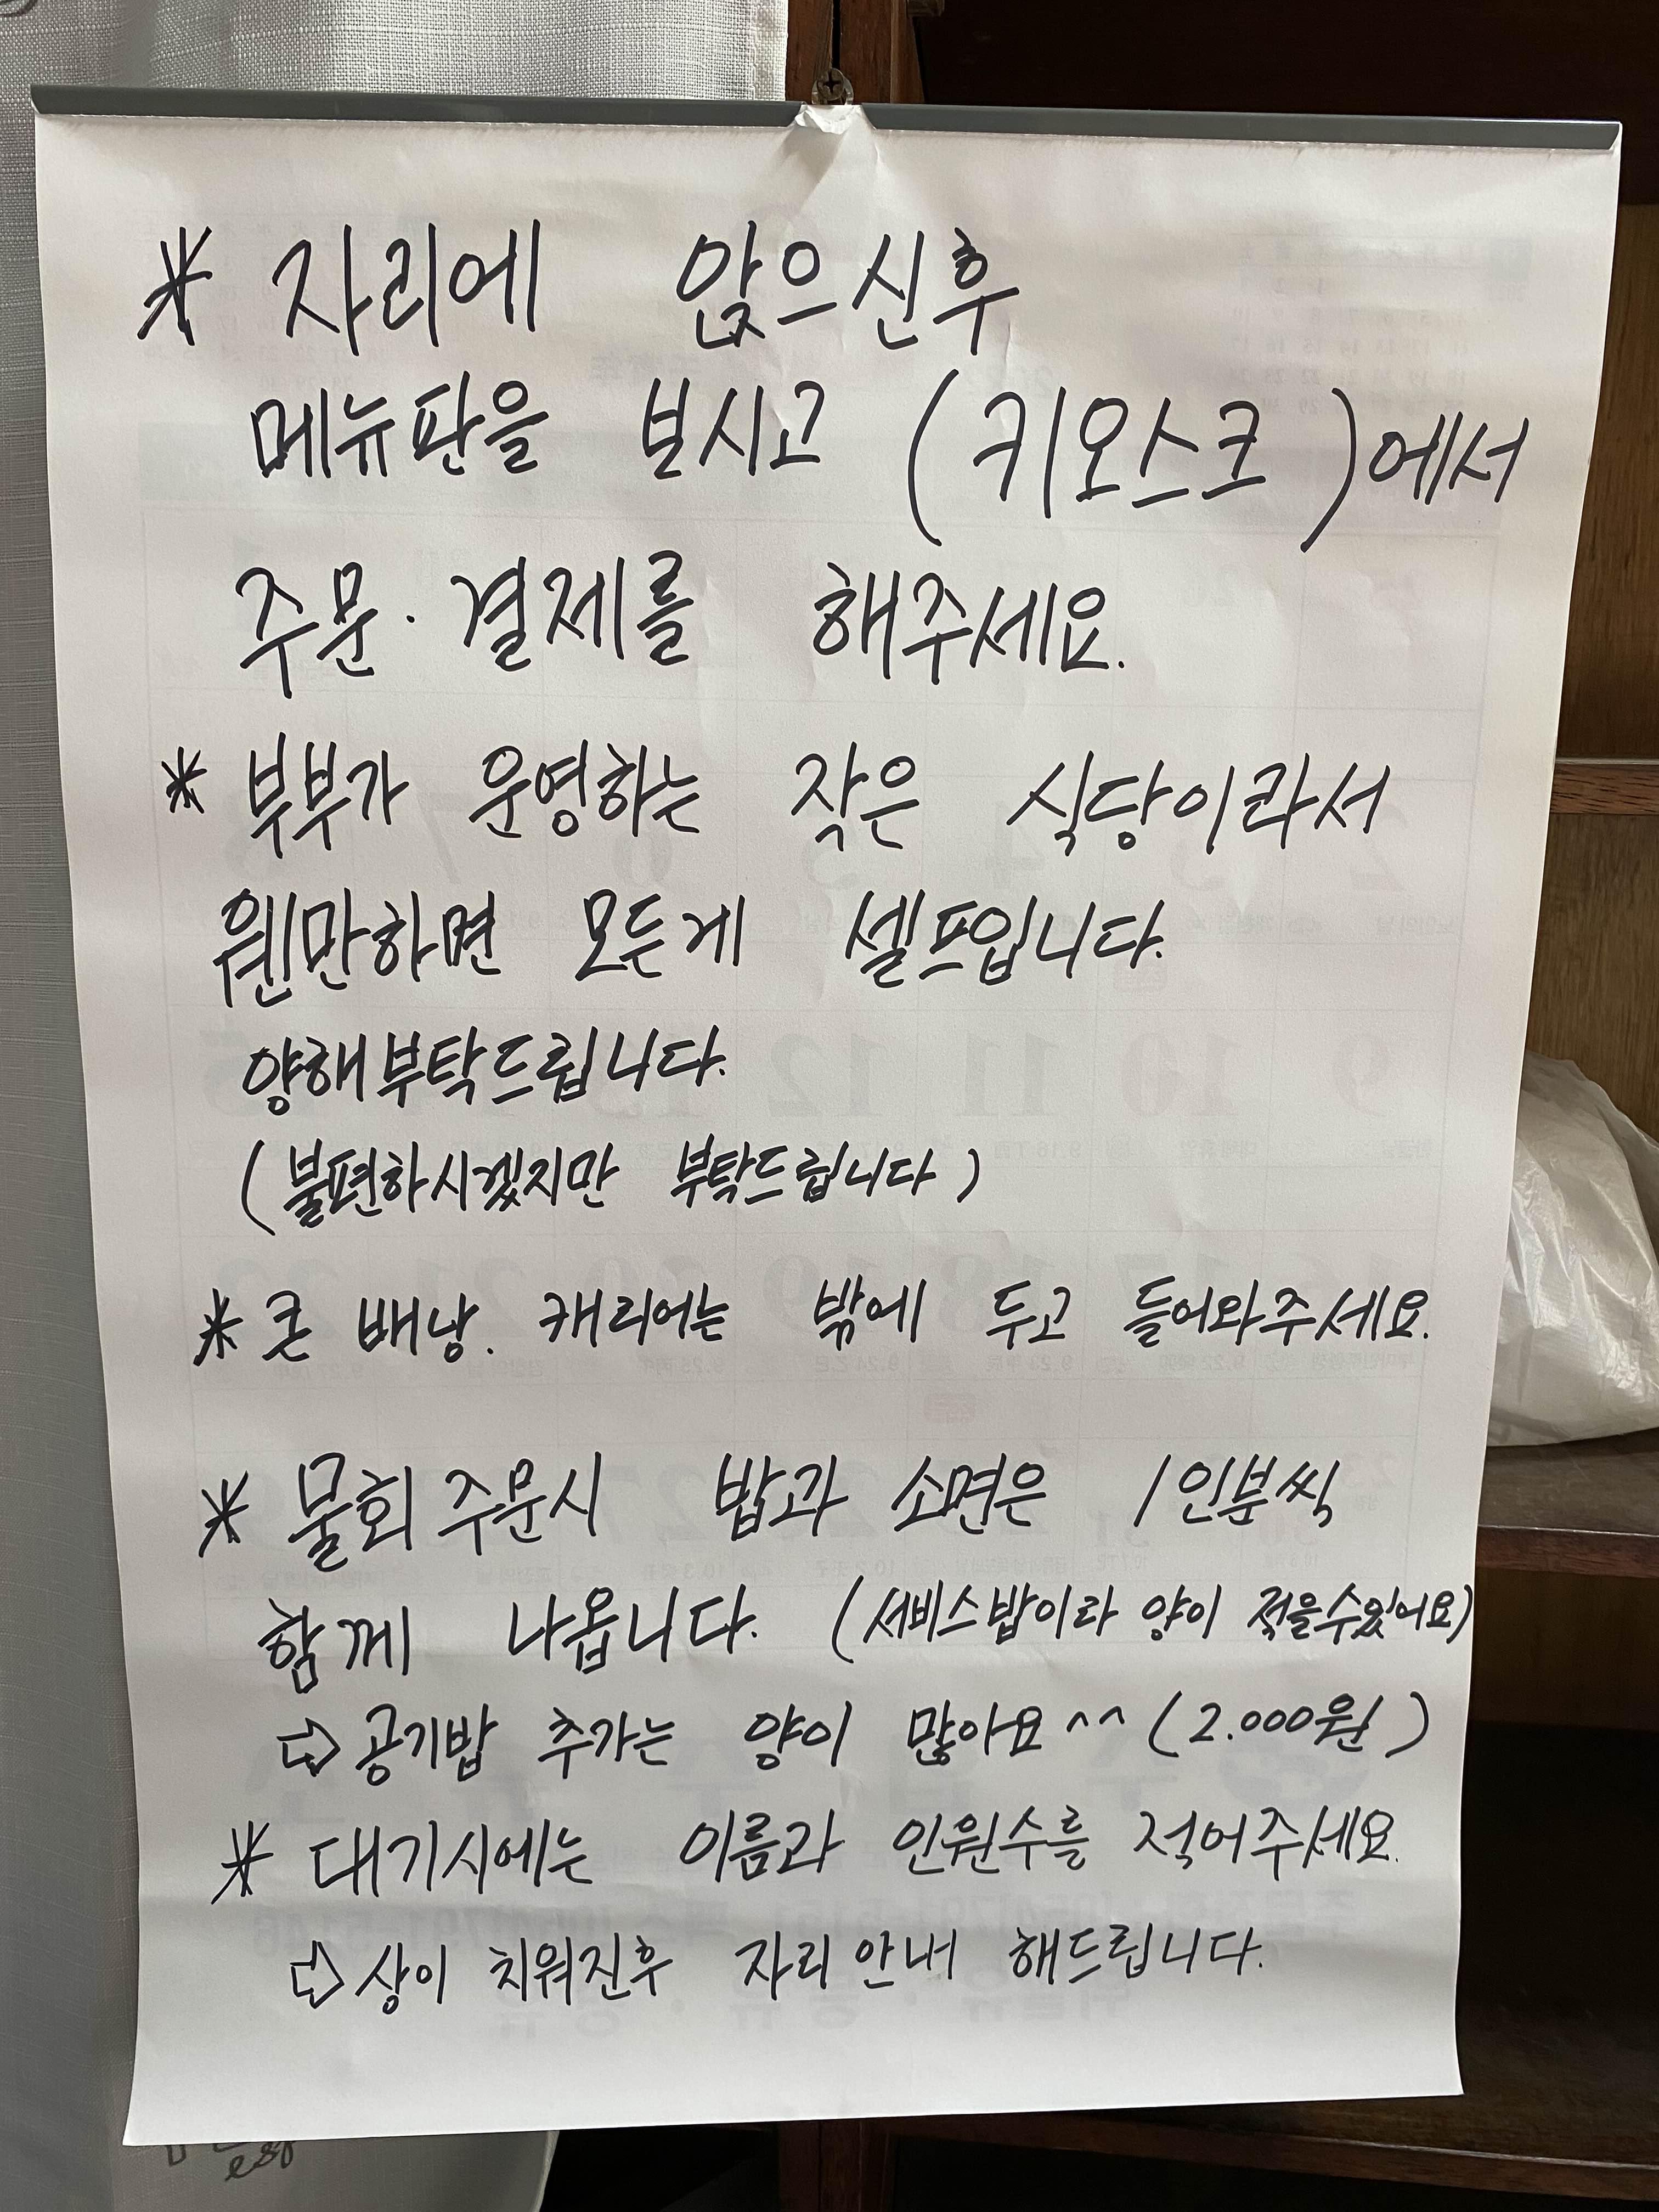 * 자리에 앉으신후
메뉴판을 보시고 (키오스크)에서
주문·결제를 해주세요.
* 부부가 운영하는 작은 식당이라서
웬만하면 모든게 셀프입니다.
양해부탁드립니다.
(불편하시겠지만 부탁드립니다)
* 큰 배낭. 캐리어는 밖에 두고 들어와주세요.
* 물회 주문시 밥과 소면은 1인분씩
함께 나옵니다. (서비스밥이라 양이 적을수있어요)
⇨ 공기밥 추가는 양이 많아요^^ (2.000원)
* 대기시에는 이름과 인원수를 적어주세요.
⇨ 상이 치워진후 자리 안내 해드립니다.